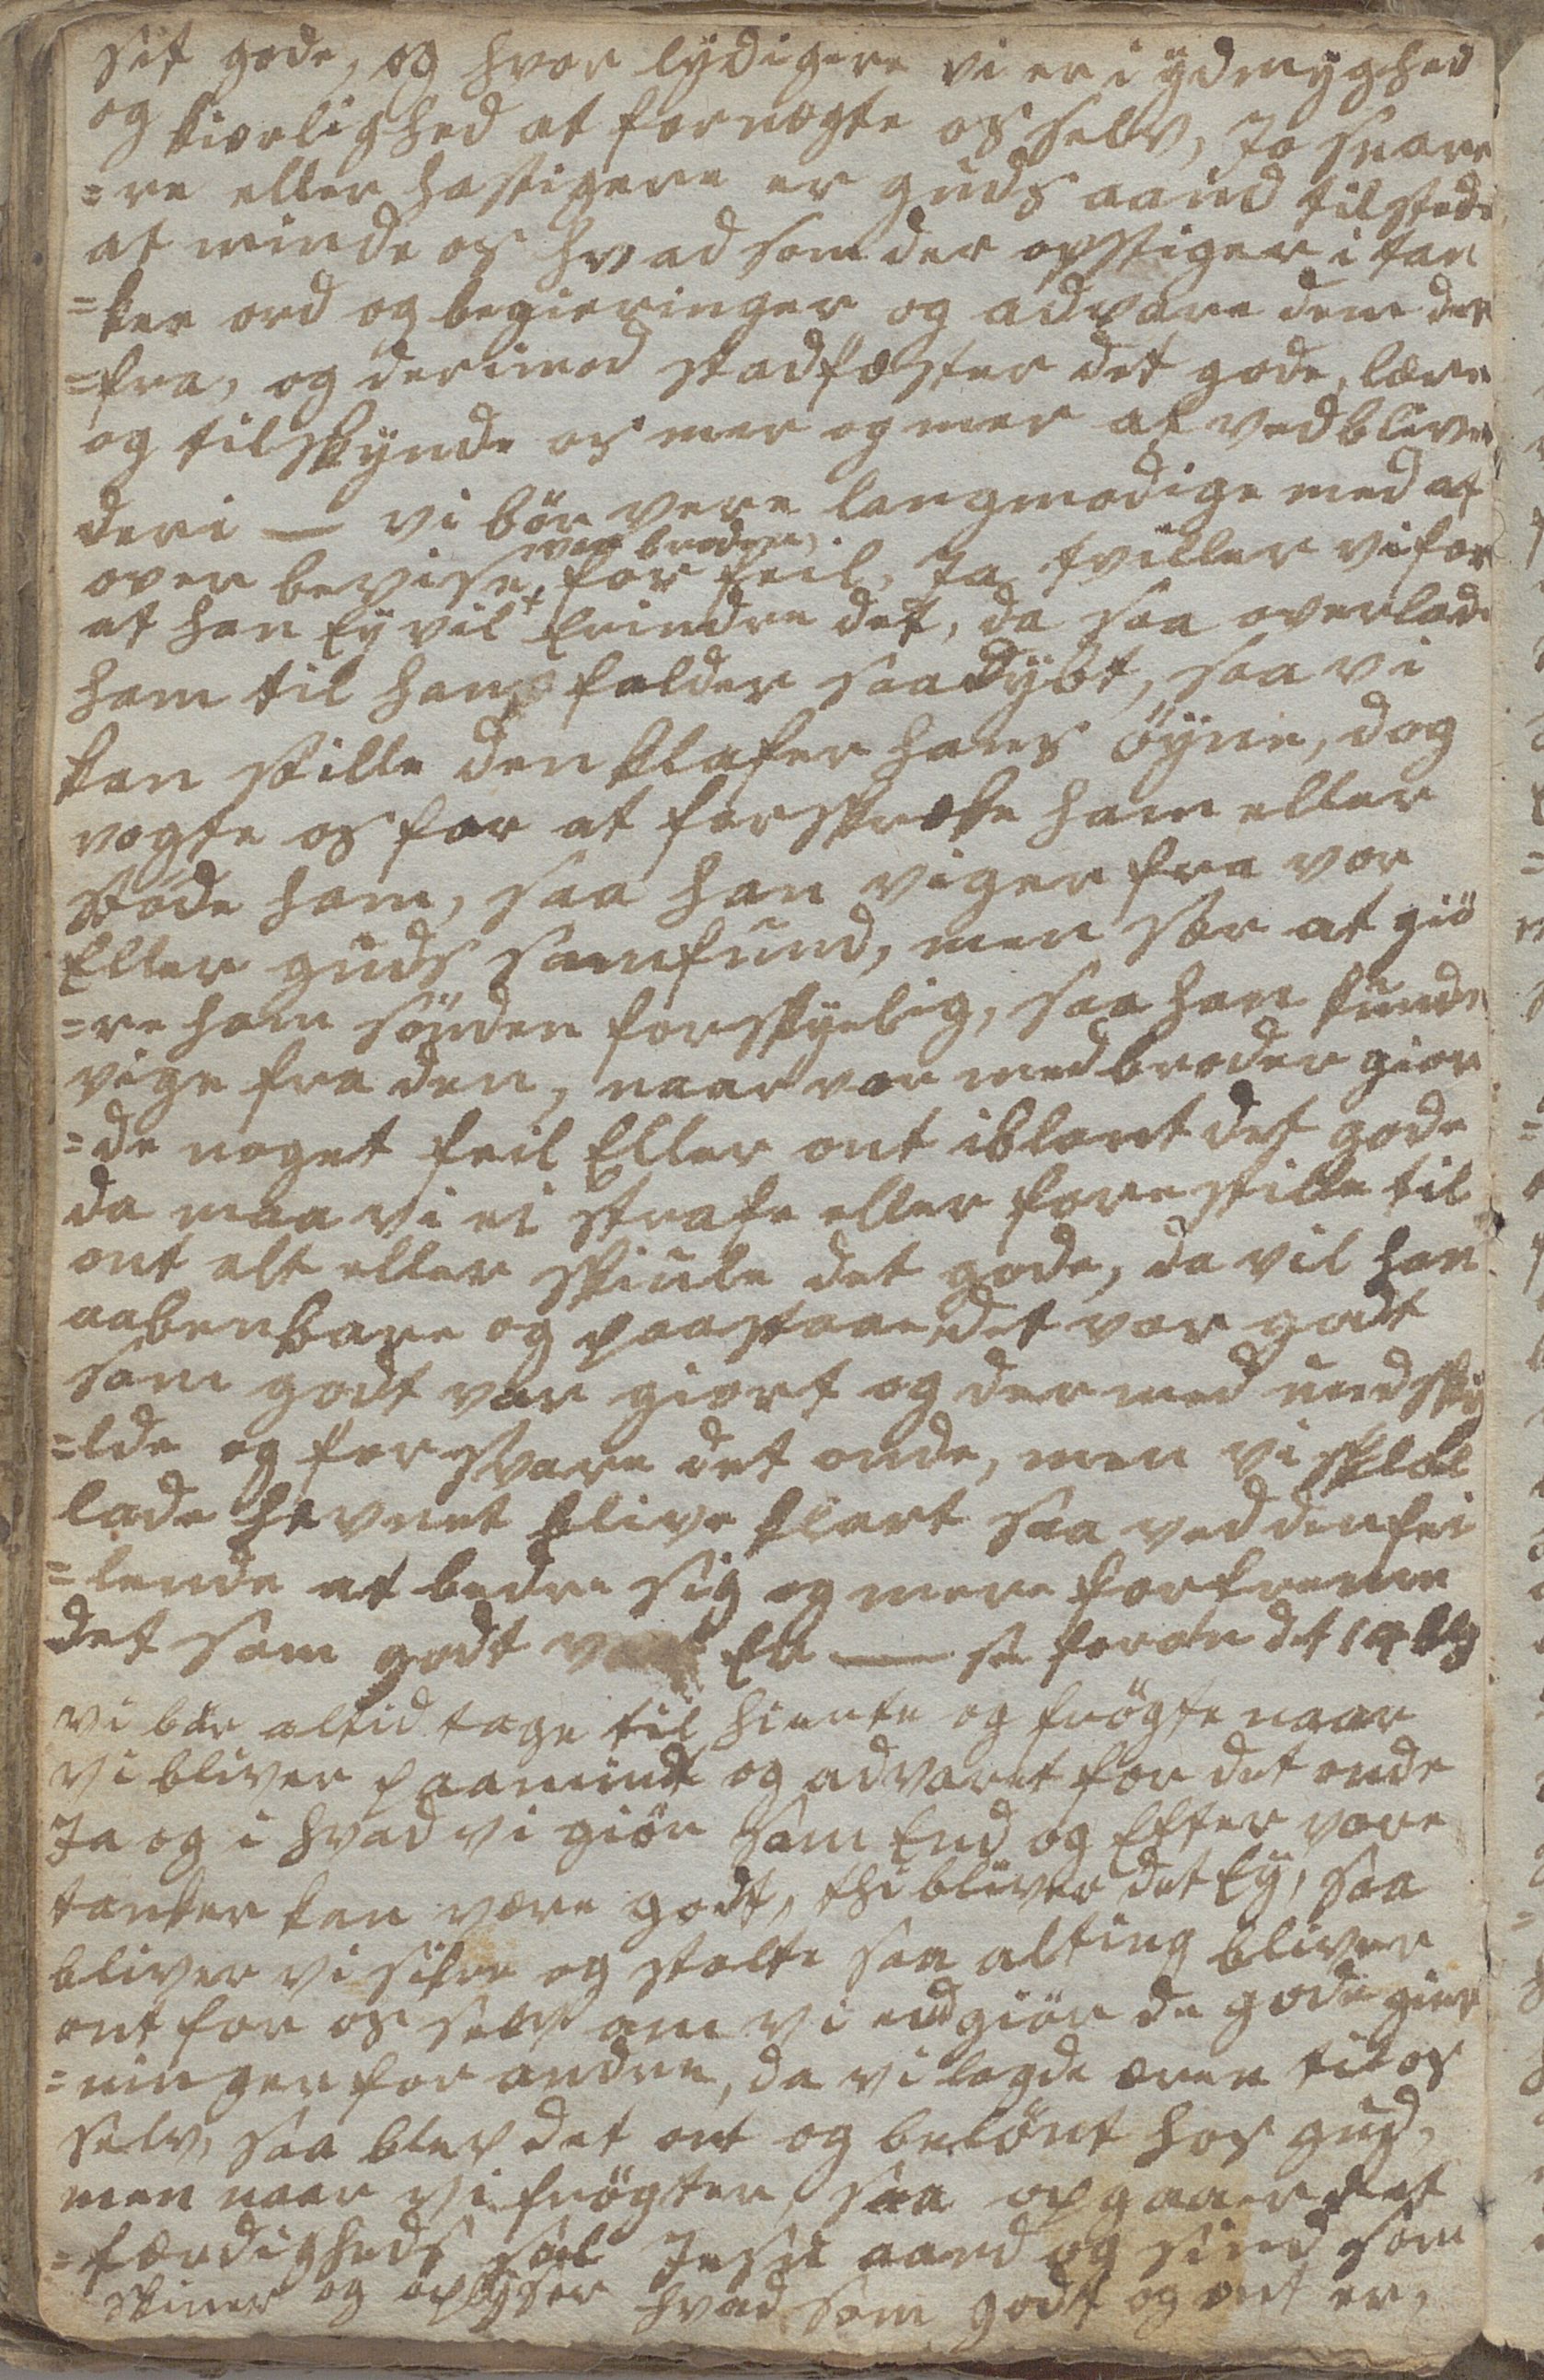 sit gode, og hvor lydigere vi er i ydmyghed
og kierlighed at fornegte os selv, Jo snare
=re eller hastigere er guds aand tilstede
at minde os hvad som der opstiger i tan
=ker ord og begieringer og advare dem der
=fra, og derimod stadfæster det gode, lære
og tilskynde os mer og mer at vedblive
deri — vi bör være langmodige med at
over bevise vor broder, for feil, Ja tviller vi for
at han Ey vil Erindre det, da saa overlade
ham til hans falder saa dybt, saa vi
kan stille den klafer hans öyne, dog
vogte os for at forskrekke ham eller
støde ham, saa han viger fra vor
Eller guds samfund, men sær at giö
=re ham synden forskyelig, saa han kunde
vige fra den, naar vor medbroder gior
=de noget feil Eller ont iblant det gode
da maa vi ei strafe eller forestille til
ont alt eller skiule det gode, da vil han
aabenbare og paastaae det var godt
som godt var giort og dermed undsky
=lde og forsvare det onde, men vi skal
lade hevnet blive klart saa ved den fei
=lende at bedre sig og mere fortreme
det som godt var Er — se foran det 14 bl
vi bør altid tage til hierte og frögte naar
vi bliver paamindt og advaret for det onde
Ja og i hvad vi giör som End og Efter vore
tanker kan være godt, thi bliver det Ey, saa
bliver vi sikre og stolte saa alting bliver
ont for os selv om vi end giör de gode gier
=ninger for andre, da vi lagde æren til os
selv, saa blev det ont og belönt hos gud,
men naar vi frögter, saa opgaaer ret
=færdigheds sol Jesu aand og sind som
skiner og oplyser hvad som godt og ont er,